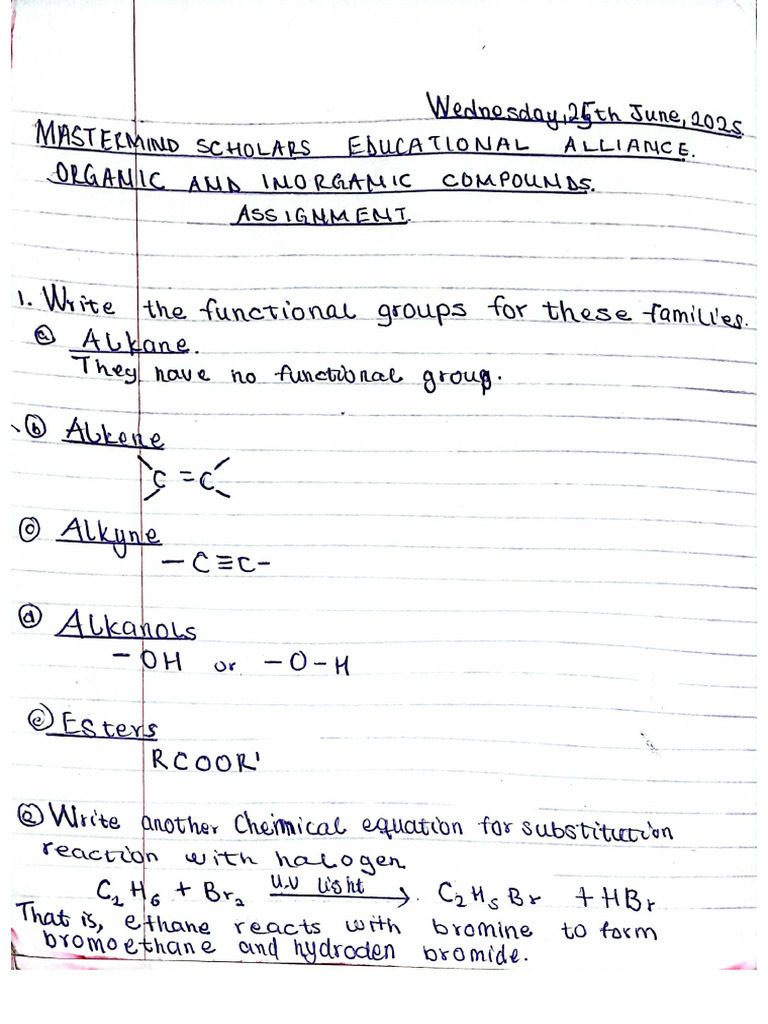 Wednesday, 25th June, 2025
MASTERMIND SCHOLARS EDUCATIONAL ALLIANCE.
ORGANIC AND INORGANIC COMPOUNDS.
ASSIGNMENT.
1. Write the functional groups for these families.
ⓐ Alkane.
They have no functional group.
ⓑ Alkene
\C=C/
/ \
ⓒ Alkyne
—C≡C-
ⓓ Alkanols
-OH or -O-H
ⓔ Esters
RCOOR'
② Write another Chemical equation for substitution
reaction with halogen
C₂H₆ + Br₂ U.V light → C₂H₅Br + HBr
That is, ethane reacts with bromine to form
bromoethane and hydroden bromide.